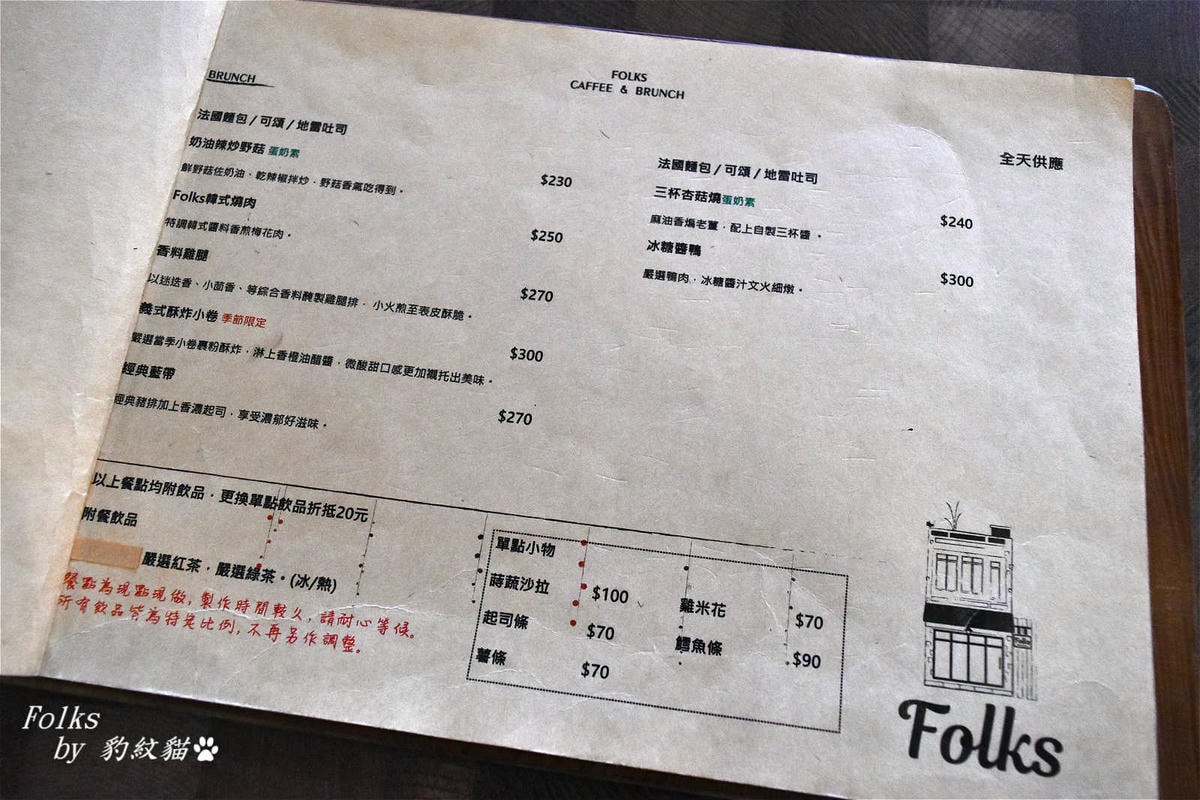 BRUNCH
FOLKS
CAFFEE & BRUNCH
法國麵包/可頌/地雷吐司
奶油辣炒野菇 蛋奶素
鮮野菇佐奶油、乾辣椒拌炒，野菇香氣吃得到。 $230
Folks韓式燒肉
特調韓式醬料香煎梅花肉。 $250
香料雞腿
以迷迭香、小茴香、等綜合香料醃製雞腿排， 小火煎至表皮酥脆。 $270
義式酥炸小卷 季節限定
嚴選當季小卷裹粉酥炸，淋上香橙油醋醬，微酸甜口感更加襯托出美味。 $300
經典藍帶
經典豬排加上香濃起司，享受濃郁好滋味。 $270
全天供應
法國麵包/可頌/地雷吐司
三杯杏菇燒蛋奶素
麻油香煸老薑，配上自製三杯醬。 $240
冰糖醬鴨
嚴選鴨肉，冰糖醬汁文火細燉。 $300
以上餐點均附飲品，更換單點飲品折抵20元
附餐飲品
嚴選紅茶，嚴選綠茶。(冰/熱)
餐點為現點現做，製作時間較久，請耐心等候。
所有飲品皆為特定比例，不再另作調整。
單點小物
蒔蔬沙拉 $100
起司條 $70
薯條 $70
雞米花 $70
鱈魚條 $90
Folks
Folks
by 豹紋貓